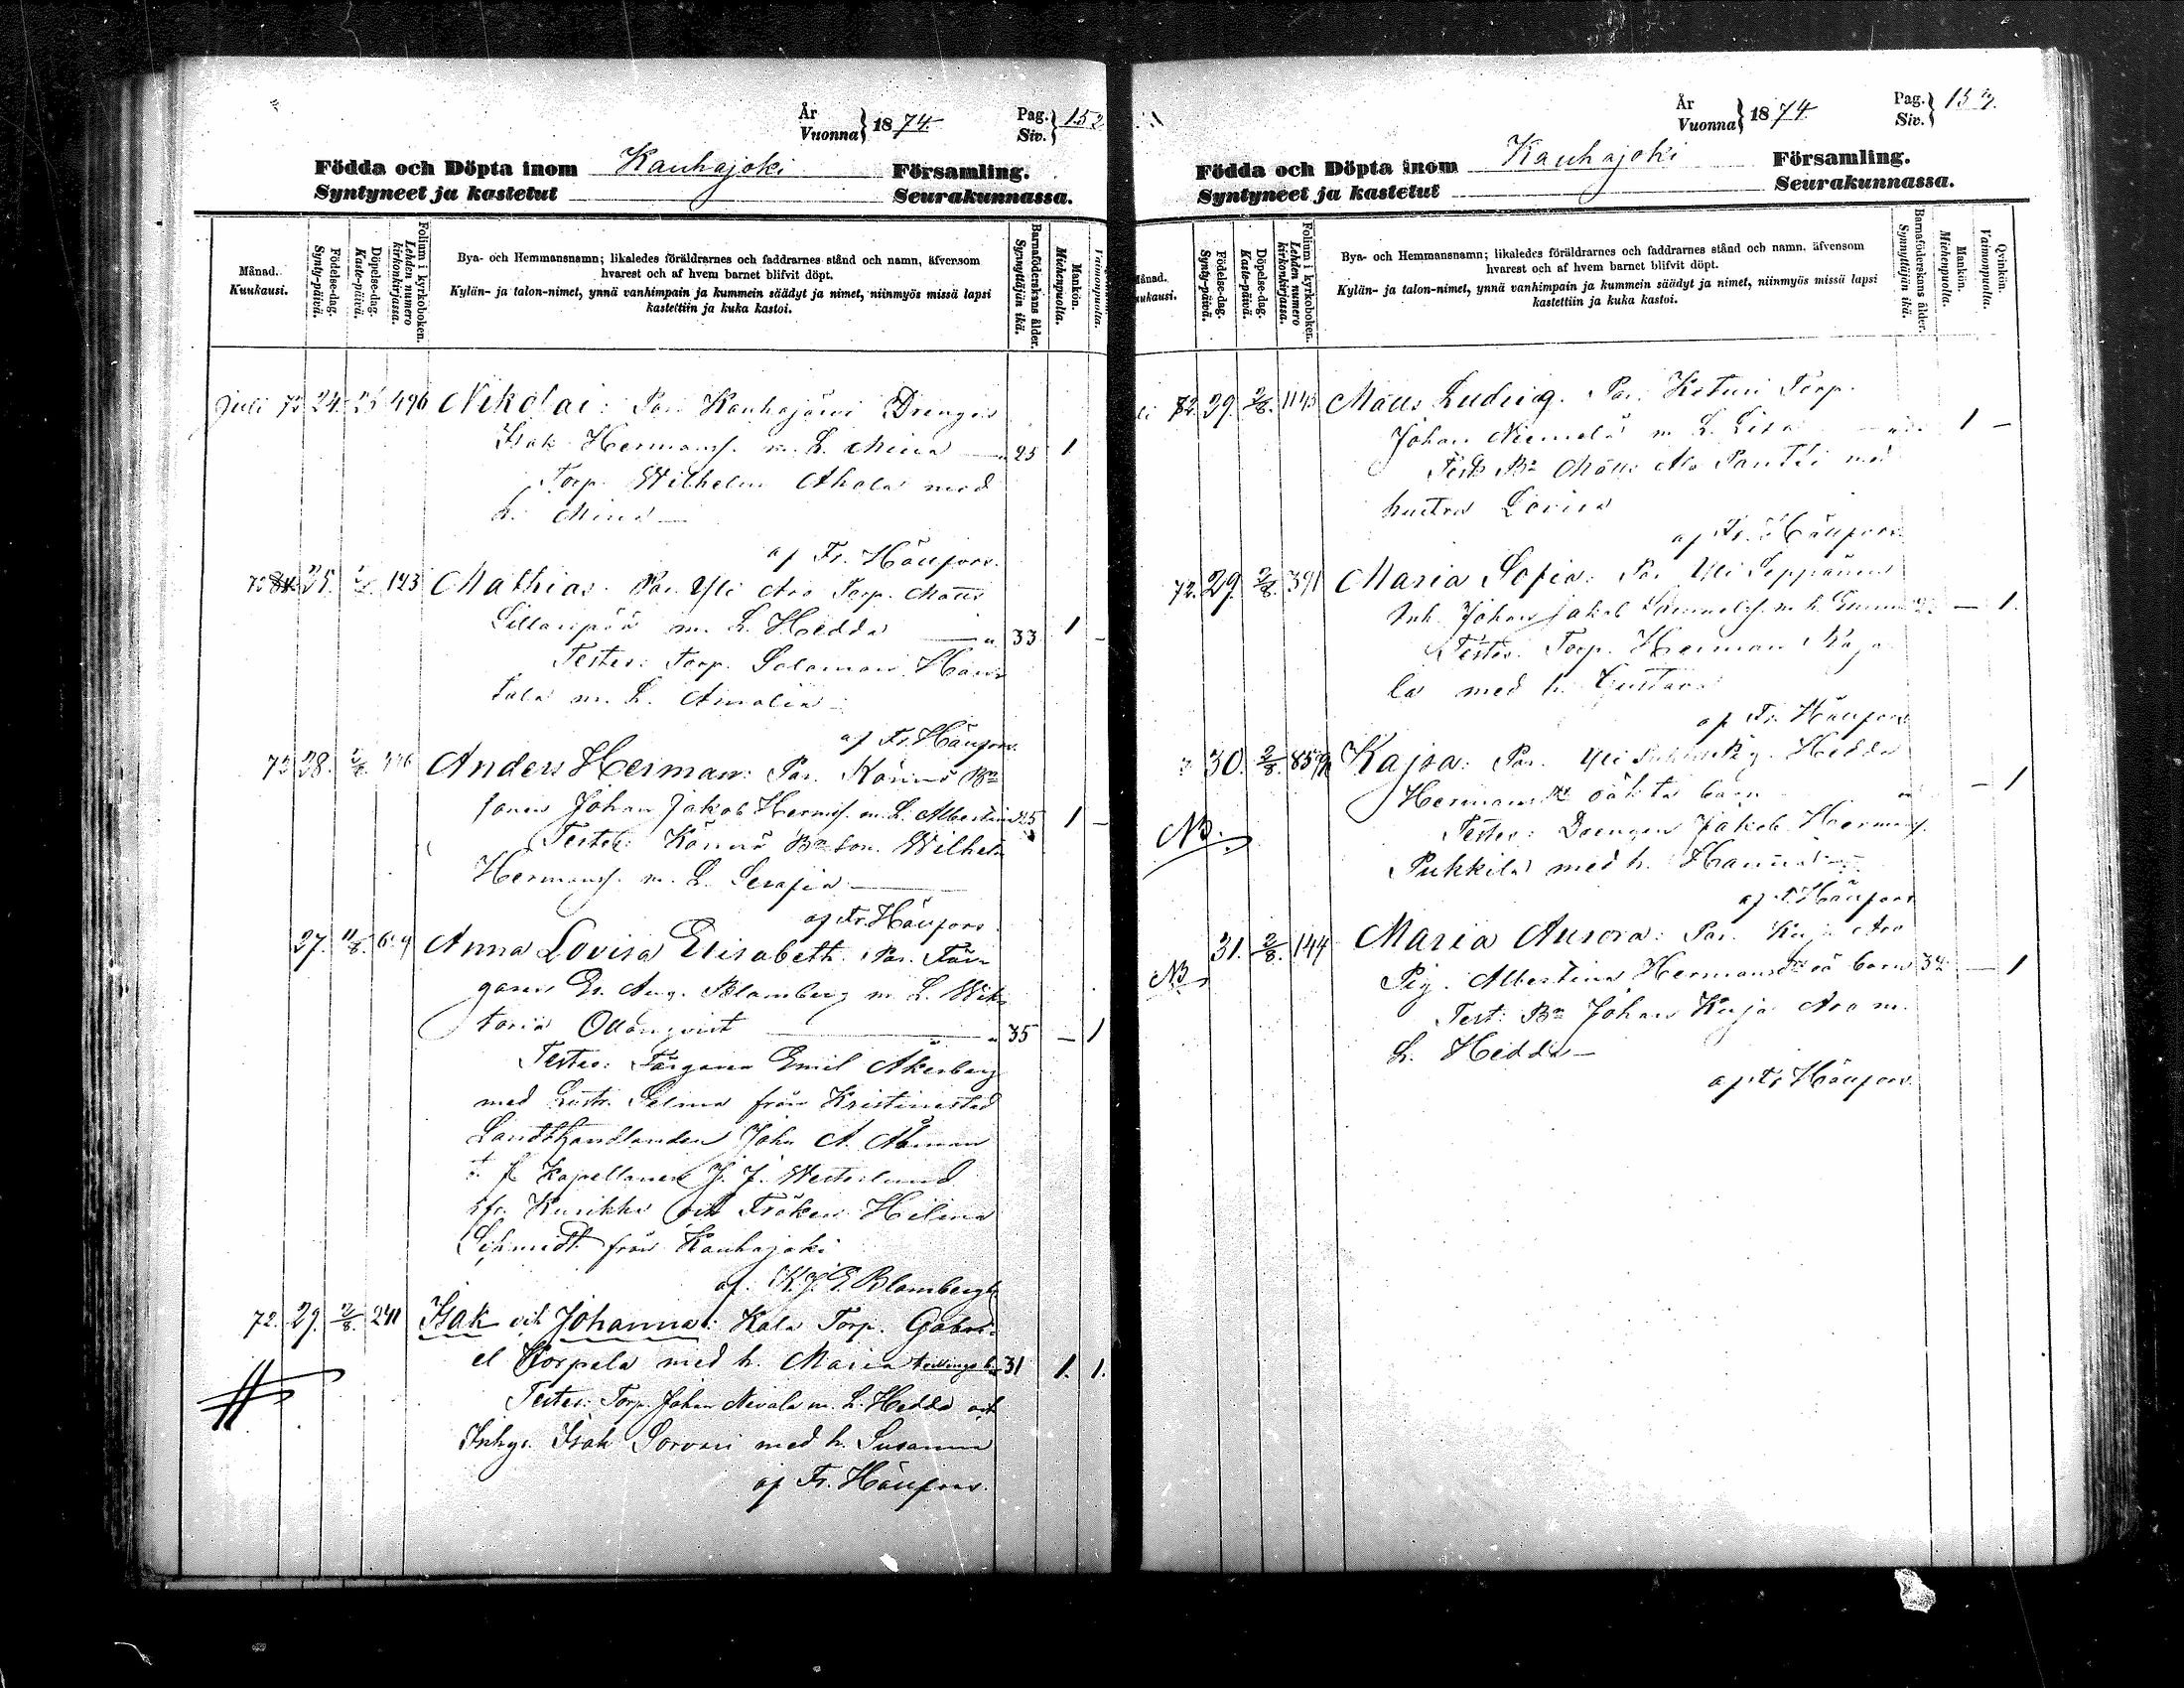 År
Vuonna } 1874.
Pag.
Siv. } 152
Födda och Döpta inom Kauhajoki Församling.
Syntyneet ja kastetut Seurakunnassa.
Månad.
Kuukausi.
Födelse-dag.
Synty-päivä.
Döpelse-dag.
Kaste-päivä.
Folium i kyrkoboken.
Lehden numero kirkonkirjassa.
Bya- och Hemmansnamn; likaledes föräldrarnes och faddrarnes stånd och namn, äfvensom
hvarest och af hvem barnet blifvit döpt.
Kylän- ja talon-nimet, ynnä vanhimpain ja kummein säädyt ja nimet, niinmyös missä lapsi
kastettiin ja kuka kastoi.
Barnaföderskans ålder.
Synnyttäjän ikä.
Mankön.
Miehenpuolia.
Vaimonpuolta.
Juli 72 24. 25 496 Nikolai: Par. Kauhajärvi Drengen
Isak Hermansf. m. h. Mina 25 1
Torp. Wilhelm Ahola med
h. Mina
af Fr. Häufors.
72 25. 123 Mathias. Par. Yli Aro Torp. Matts
Lillanpää m. h. Hedda 33 1
Testes: Torp. Salomon
tala m. h. Amalia
af Fr. Häufors.
72 28. Anders Herman: Par. Könnö Bn
sonen Johan Jakob Hermsf. m. h. Albertina 25 1
Testes: Könnö Bn son. Wilhelm
Hermansf. m. h. Serafia
af Fr. Häufors
27. 11/8. Anna Lovisa Elisabeth. Par. Fär
garen Gr. Aug. Blomberg m. h. Wik
toria 35 1
Testes: Färgaren Emil Åkerberg
med hustr. Selma från Kristinestad
Landthandlanden John A. Åman
Kapellanen J. J. Westerlund
Kurikka och Fröken Hilma
Schmidt från Kauhajoki
af K. J. G. Blomberg
72. 29. 2/8. 241 Isak och Johanna: Kala Torp. Gabri-
el Korpela med h. Maria tvillingsb. 31 1. 1.
Testes: Torp. Johan Nevala m. h. Hedda och
Inhys. Isak Sorvari med h. Susanna
af Fr. Häufors.
År
Vuonna } 1874.
Pag.
Siv. } 153.
Födda och Döpta inom Kauhajoki Församling.
Syntyneet ja kastetut Seurakunnassa.
Månad.
Kuukausi.
Födelse-dag.
Synty-päivä.
Döpelse-dag.
Kaste-päivä.
Folium i kyrkoboken.
Lehden numero kirkonkirjassa.
Bya- och Hemmansnamn; likaledes föräldrarnes och faddrarnes stånd och namn, äfvensom
hvarest och af hvem barnet blifvit döpt.
Kylän- ja talon-nimet, ynnä vanhimpain ja kummein säädyt ja nimet, niinmyös missä lapsi
kastettiin ja kuka kastoi.
Barnaföderskans ålder.
Synnyttäjän ikä.
Mankön.
Miehenpuolia.
Qvinkön.
Vaimonpuolta.
72. 29. 2/8. 1143 Matts Ludvig. Par. Keturi Torp.
Johan Niemelä m. h. Lisa 1
Test: Bn Matts Ala Pantti med
hustru Lovisa
af Fr. Häufors
72. 29. 2/8. 391 Maria Sofia: Par. Yli Seppänen
Inh. Johan Jakob Samuelsf. m. h. 1.
Testes: Torp. Herman Raja
la med h. Gustava
af Fr. Häufors
30. 2/8. Kajsa: Par. Yli Hedda
Hermansdr oäkta barn 1
NB.
Testes: Drengen Jakob Hermansf.
Pukkila med h. Hanna
af Fr. Häufors
31. 2/8. 144 Maria Aurora: Par. Kuja Aro
NB
Pig. Albertina Hermansdr oä barn 34 1
Test: Bn Johan Kuja Aro m.
h. Hedda
af Fr. Häufors.